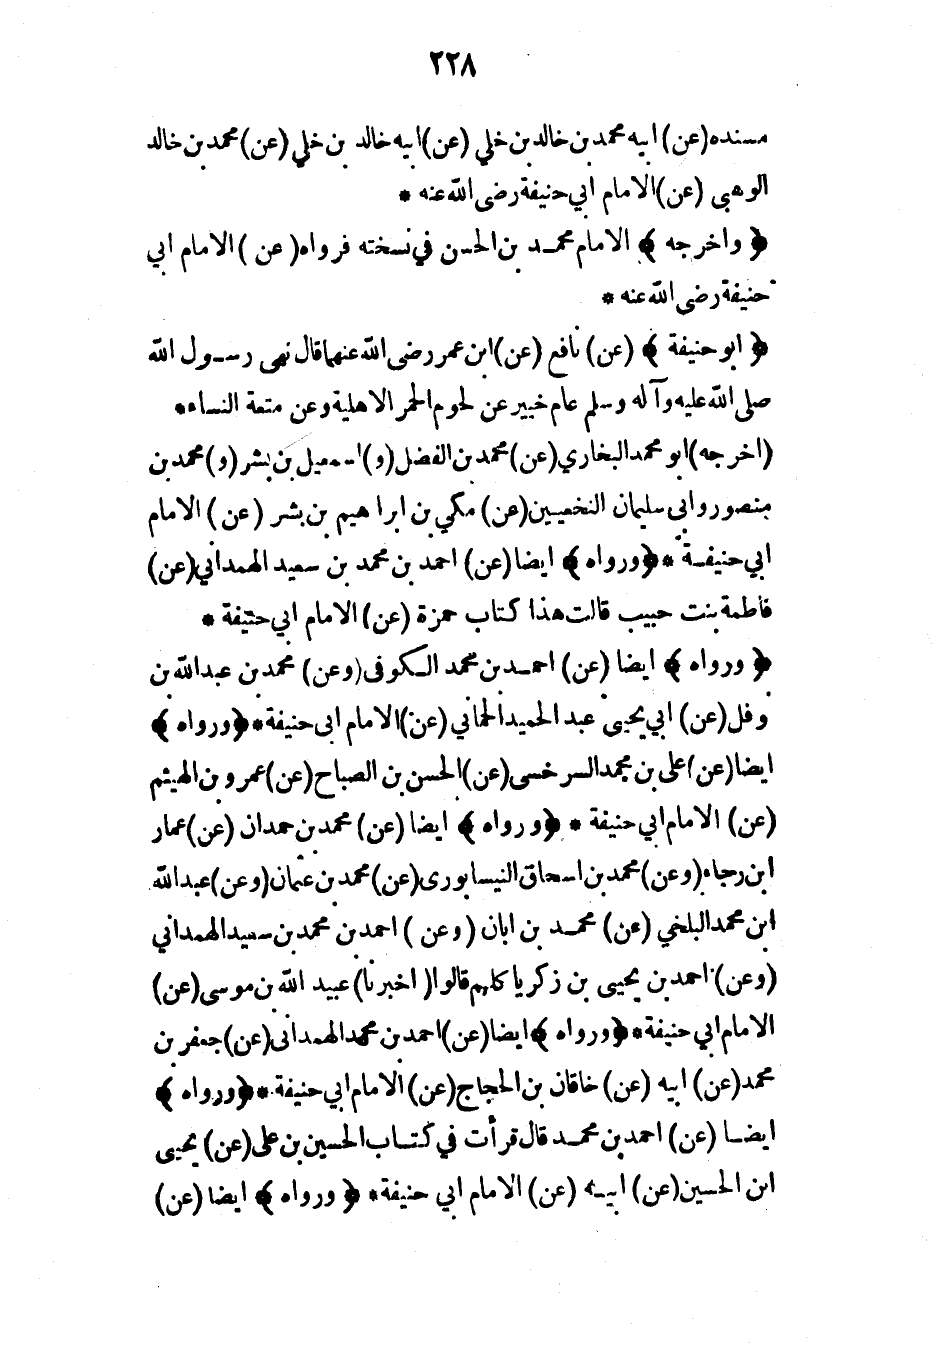 ٢٢٨
مسنده (عن) ابيه محمد بن خالد بن خلي (عن) ابيه خالد بن خلي (عن) محمد بن خالد
الوهبى (عن) الامام ابي حنيفة رضى الله عنه *
﴿ واخرجه ﴾ الامام محمد بن الحسن في نسخته فرواه (عن) الامام ابي
حنيفة رضى الله عنه *
﴿ ابو حنيفة ﴾ (عن) نافع (عن) ابن عمر رضى الله عنهما قال نهى رسول الله
صلى الله عليه وآله وسلم عام خيبر عن لحوم الحمر الاهلية وعن متعة النساء *
(اخرجه) ابو محمد البخاري (عن) محمد بن الفضل (و) اسمعيل بن بشر (و) محمد بن
منصور وابى سليمان النخعيين (عن) مكي بن ابراهيم بن بشر (عن) الامام
ابي حنيفة * ﴿ ورواه ﴾ ايضا (عن) احمد بن محمد بن سعيد الهمداني (عن)
فاطمة بنت حبيب قالت هذا كتاب حمزة (عن) الامام ابي حنيفة *
﴿ ورواه ﴾ ايضا (عن) احمد بن محمد الكوفى (وعن) محمد بن عبدالله بن
نوفل (عن) ابي يحيى عبد الحميد الحماني (عن) الامام ابى حنيفة * ﴿ ورواه ﴾
ايضا (عن) على بن محمد السرخسى (عن) الحسن بن الصباح (عن) عمرو بن الهيثم
(عن) الامام ابي حنيفة * ﴿ ورواه ﴾ ايضا (عن) محمد بن حمدان (عن) عمار
ابن رجاء (وعن) محمد بن اسحاق النيسابورى (عن) محمد بن عثمان (وعن) عبدالله
ابن محمد البلخي (عن) محمد بن ابان (وعن) احمد بن محمد بن سعيد الهمداني
(وعن) احمد بن يحيى بن زكريا كلهم قالوا (اخبرنا) عبيد الله بن موسى (عن)
الامام ابي حنيفة * ﴿ ورواه ﴾ ايضا (عن) احمد بن محمد الهمدانى (عن) جعفر بن
محمد (عن) ابيه (عن) خاقان بن الحجاج (عن) الامام ابي حنيفة * ﴿ ورواه ﴾
ايضا (عن) احمد بن محمد قال قرأت في كتاب الحسين بن على (عن) يحيى
ابن الحسين (عن) ابيه (عن) الامام ابي حنيفة * ﴿ ورواه ﴾ ايضا (عن)